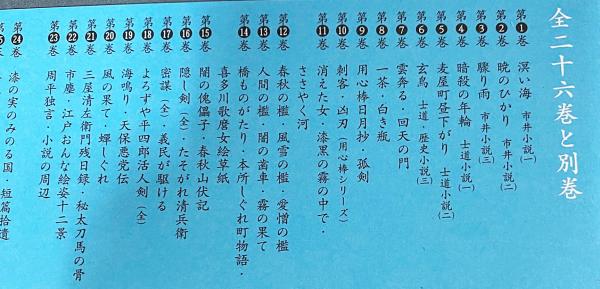 全二十六巻と別巻
第❶巻 溟い海 市井小説(一)
第❷巻 暁のひかり 市井小説(二)
第❸巻 驟り雨 市井小説(三)
第❹巻 暗殺の年輪 士道小説(一)
第❺巻 麦屋町昼下がり 士道小説(二)
第❻巻 玄鳥 士道・歴史小説(三)
第❼巻 雲奔る・回天の門
第❽巻 一茶・白き瓶
第❾巻 用心棒日月抄・孤剣
第❿巻 刺客・凶刃(用心棒シリーズ)
第⓫巻 消えた女・漆黒の霧の中で・
ささやく河
第⓬巻 春秋の檻・風雪の檻・愛憎の檻
第⓭巻 人間の檻・闇の歯車・霧の果て
第⓮巻 橋ものがたり・本所しぐれ町物語・
喜多川歌麿女絵草紙
第⓯巻 闇の傀儡子・春秋山伏記
第⓰巻 隠し剣(全)・たそがれ清兵衛
第⓱巻 密謀(全)・義民が駆ける
第⓲巻 よろずや平四郎活人剣(全)
第⓳巻 海鳴り・天保悪党伝
第⓴巻 風の果て・蟬しぐれ
第㉑巻 三屋清左衛門残日録・秘太刀馬の骨
第㉒巻 市塵・江戸おんな絵姿十二景
第㉓巻 周平独言・小説の周辺
第㉔巻 漆の実のみのる国・短篇拾遺